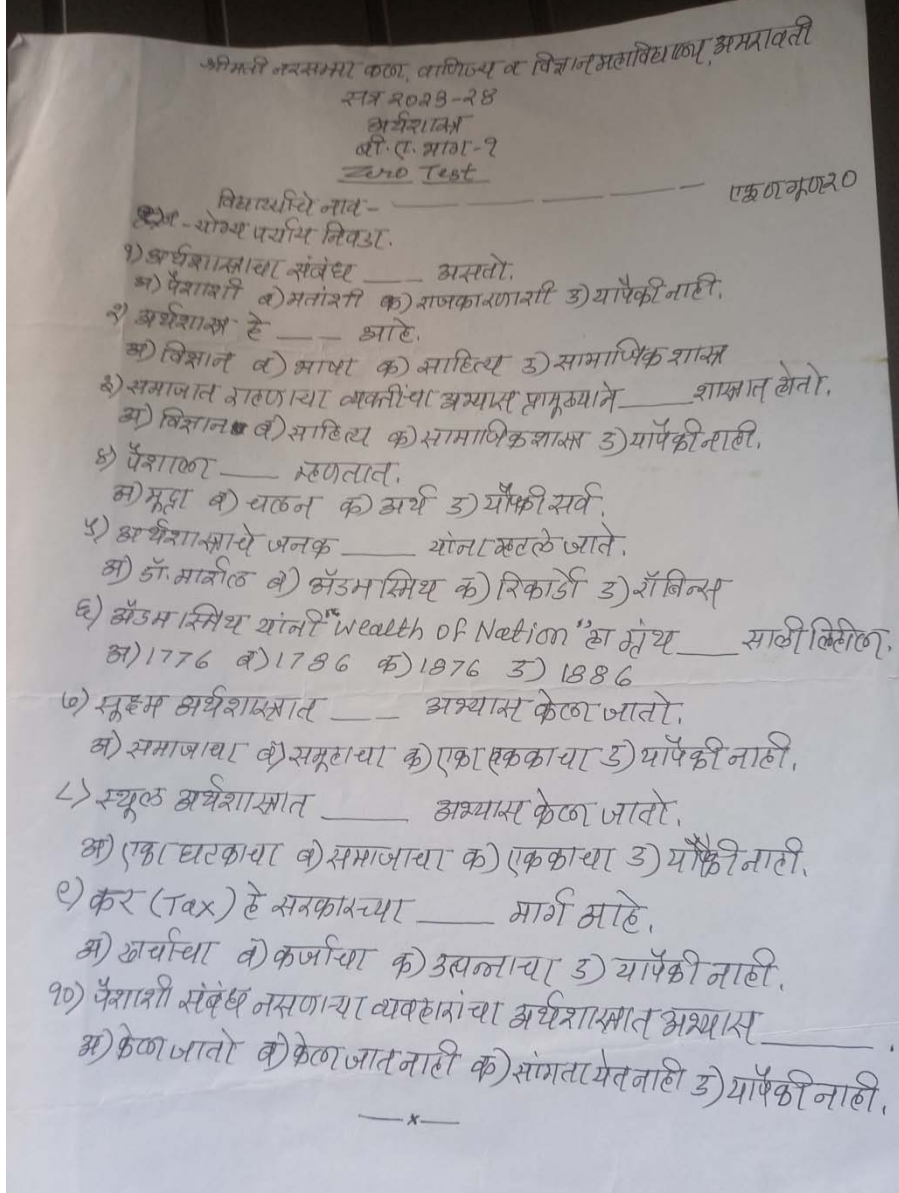 श्रीमती नरसम्मा कला, वाणिज्य व विज्ञान महाविद्यालय, अमरावती
सत्र २०२३-२४
अर्थशास्त्र
बी.ए. भाग-१
Zero Test
विद्यार्थ्याचे नाव- — — — — — — एकूण गुण २०
प्रश्न - योग्य पर्याय निवडा.
१) अर्थशास्त्राचा संबंध ____ असतो.
अ) पैशाशी ब) मतांशी क) राजकारणाशी ड) यापैकी नाही.
२) अर्थशास्त्र हे ____ आहे.
अ) विज्ञान ब) भाषा क) साहित्य ड) सामाजिक शास्त्र
३) समाजात राहणाऱ्या व्यक्तींचा अभ्यास प्रामुख्याने ____ शास्त्रात होतो.
अ) विज्ञान ब) साहित्य क) सामाजिक शास्त्र ड) यापैकी नाही.
४) पैशाला ____ म्हणतात.
अ) मुद्रा ब) चलन क) अर्थ ड) यापैकी सर्व.
५) अर्थशास्त्राचे जनक ____ यांना म्हटले जाते.
अ) डॉ. मार्शल ब) ॲडम स्मिथ क) रिकार्डो ड) रॉबिन्स
६) ॲडम स्मिथ यांनी "Wealth of Nation" हा ग्रंथ ____ साली लिहीला.
अ) 1776 ब) 1786 क) 1876 ड) 1886
७) सूक्ष्म अर्थशास्त्रात ____ अभ्यास केला जातो.
अ) समाजाचा ब) समूहाचा क) एका एककाचा ड) यापैकी नाही.
८) स्थूल अर्थशास्त्रात ____ अभ्यास केला जातो.
अ) एका घटकाचा ब) समाजाचा क) एककाचा ड) यापैकी नाही.
९) कर (Tax) हे सरकारच्या ____ मार्ग आहे.
अ) खर्चाचा ब) कर्जाचा क) उत्पन्नाचा ड) यापैकी नाही.
१०) पैशाशी संबंध नसणाऱ्या व्यवहारांचा अर्थशास्त्रात अभ्यास ____.
अ) केला जातो ब) केला जात नाही क) सांगता येत नाही ड) यापैकी नाही.
—x—